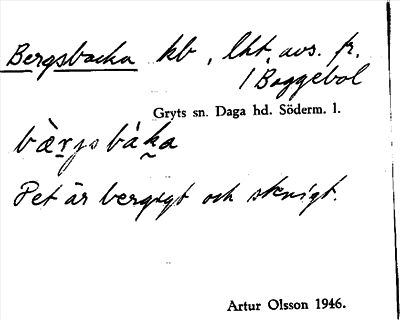 Bergsbacka kb, lht. avs. fr.
1 Baggebol
Gryts sn. Daga hd. Söderm. l.
bæ̀r̠js bák̬a
Det är bergigt och stenigt.
Artur Olsson 1946.